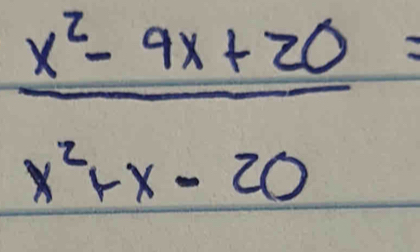 x² - 9x + 20 =
x² + x - 20